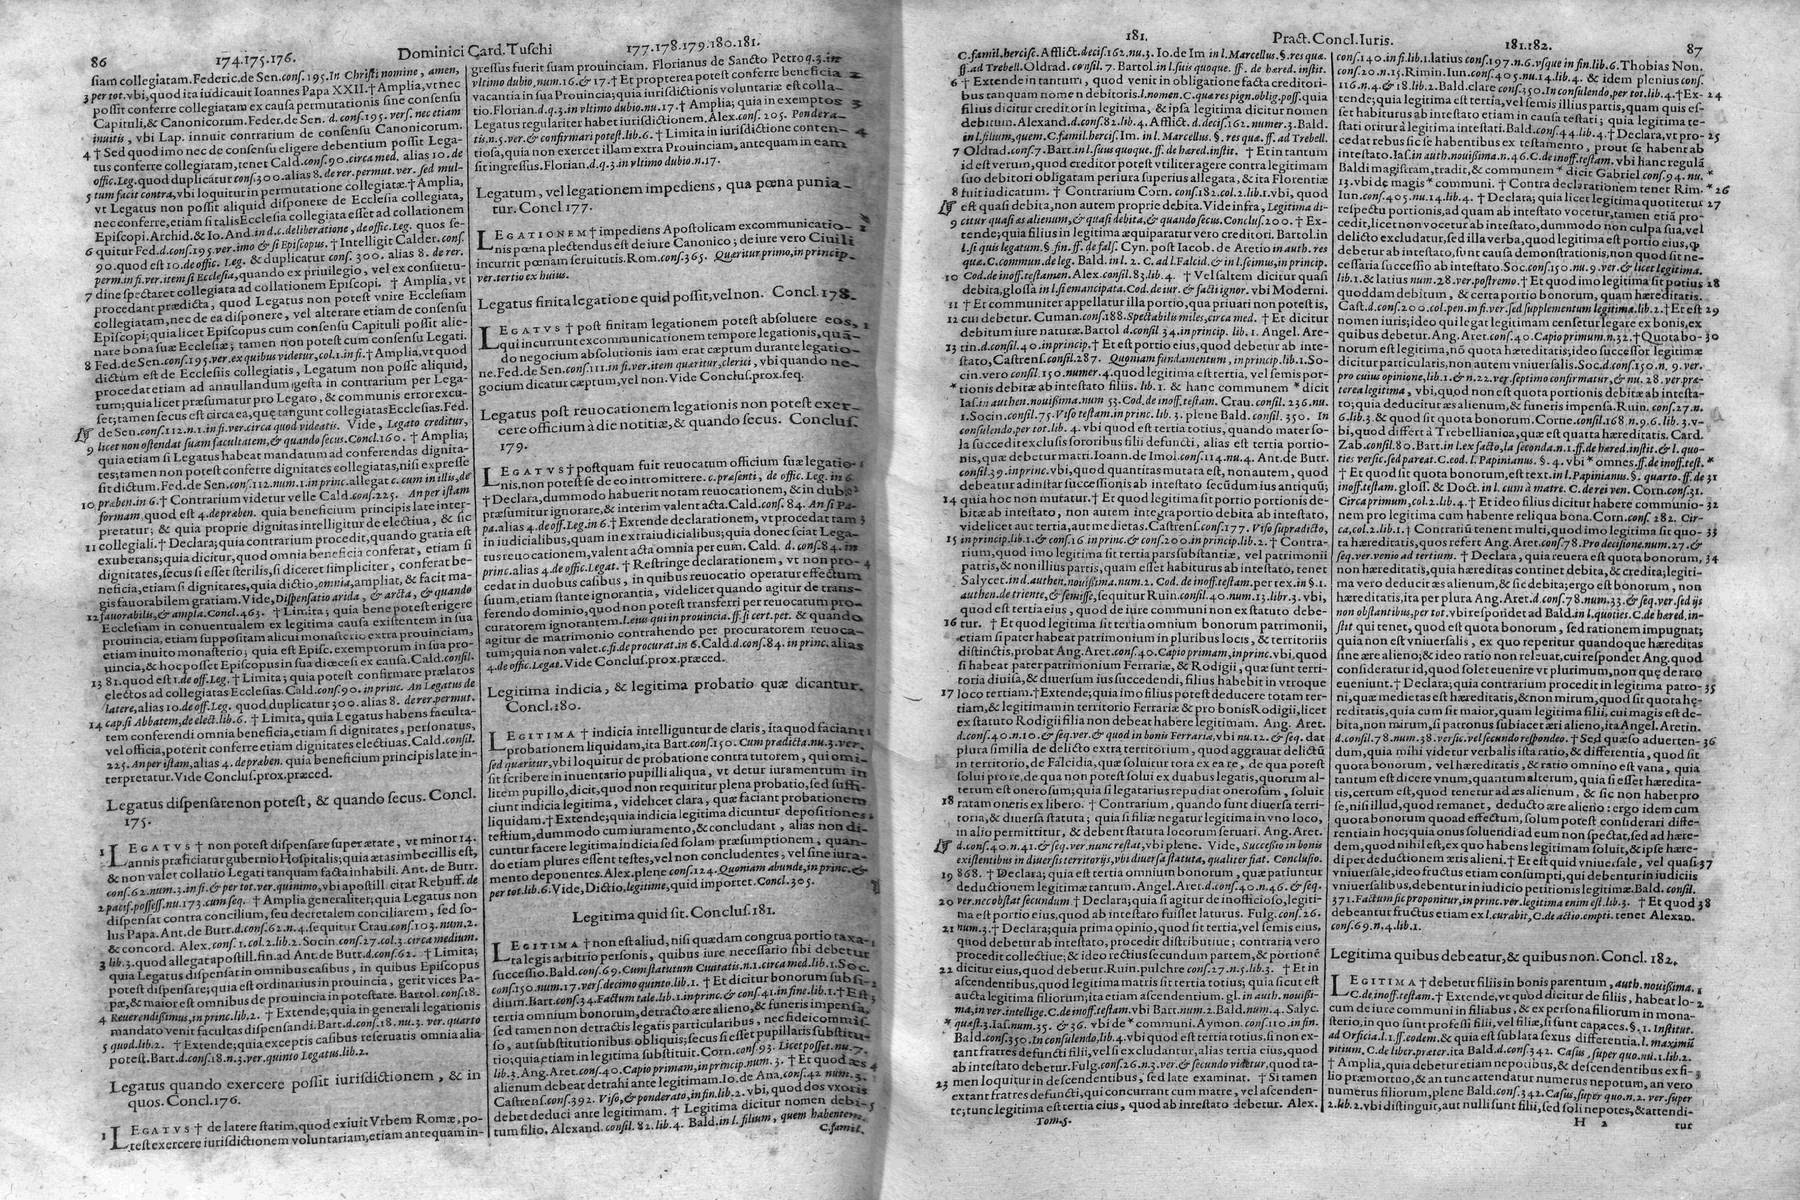 86
174.175.176.
Dominici Card. Tuschi
177.178.179.180.181.
siam collegiatam. Federic. de Sen. conſ. 195. In Chriſti nomine, amen,
3 per tot. vbi, quod ita iudicauit Ioannes Papa XXII. † Amplia, vt nec
poſſit conferre collegiatam ex cauſa permutationis ſine conſenſu
Capituli, & Canonicorum. Feder. de Sen. d. conſ. 195. verſ. nec etiam
inuitis, vbi Lap. innuit contrarium de conſenſu Canonicorum.
4 † Sed quod imo nec de conſenſu eligere debentium poſſit Lega-
tus conferre collegiatam, tenet Cald. conſ. 90. circa med. alias 10. de
offic. Leg. quod duplicatur conſ. 300. alias 8. de rer. permut. ver. ſed mul-
5 tum facit contra, vbi loquitur in permutatione collegiatæ. † Amplia,
vt Legatus non poſſit aliquid diſponere de Eccleſia collegiata,
nec conferre, etiam ſi talis Eccleſia collegiata eſſet ad collationem
Epiſcopi. Archid. & Io. And. in d. c. deliberatione, de offic. Leg. quos ſe-
6 quitur Fed. d. conſ. 195. ver. imo & ſi Epiſcopus. † Intelligit Calder. conſ.
90. quod eſt 10. de offic. Leg. & duplicatur conſ. 300. alias 8. de rer.
perm. in fi. ver. item ſi Eccleſia, quando ex priuilegio, vel ex conſuetu-
7 dine ſpectaret collegiata ad collationem Epiſcopi. † Amplia, vt
procedant prædicta, quod Legatus non poteſt vnire Eccleſiam
collegiatam, nec de ea diſponere, vel alterare etiam de conſenſu
Epiſcopi; quia licet Epiſcopus cum conſenſu Capituli poſſit alie-
nare bona ſuæ Eccleſiæ; tamen non poteſt cum conſenſu Legati.
8 Fed. de Sen. conſ. 195. ver. ex quibus videtur, col. 1. in fi. † Amplia, vt quod
dictum eſt de Eccleſiis collegiatis, Legatum non poſſe aliquid,
procedat etiam ad annullandum geſta in contrarium per Lega-
tum; quia licet præſumatur pro Legato, & communis error excu-
ſet; tamen ſecus eſt circa ea, quę tangunt collegiatas Eccleſias. Fed.
de Sen. conſ. 112. n. 1. in fi. ver. circa quod videatis. Vide, Legato creditur,
licet non oſtendat ſuam facultatem, & quando ſecus. Concl. 160. † Amplia;
9 quia etiam ſi Legatus habeat mandatum ad conferendas dignita-
tes; tamen non poteſt conferre dignitates collegiatas, niſi expreſſe
ſit dictum. Fed. de Sen. conſ. 112. num. 1. in princ. allegat c. cum in illis, de
10 præben. in 6. † Contrarium videtur velle Cald. conſ. 225. An per iſtam
formam quod eſt 4. de præben. quia beneficium principis late inter-
pretatur; & quia proprie dignitas intelligitur de electiua, & ſic
11 collegiali. † Declara; quia contrarium procedit, quando gratia eſt
exuberans; quia dicitur, quod omnia beneficia conferat, etiam ſi
dignitates, ſecus ſi eſſet ſterilis, ſi diceret ſimpliciter, conferat be-
neficia, etiam ſi dignitates, quia dictio, omnia, ampliat, & facit ma-
gis fauorabilem gratiam. Vide, Diſpenſatio arida, & arcta, & quando
12 fauorabilis, & ampla. Concl. 463. † Limita; quia bene poteſt erigere
Eccleſiam in conuentualem ex legitima cauſa exiſtentem in ſua
prouincia, etiam ſuppoſitam alicui monaſterio extra prouinciam,
etiam inuito monaſterio; quia eſt Epiſc. exemptorum in ſua pro-
uincia, & hoc poſſet Epiſcopus in ſua diœceſi ex cauſa. Cald. conſil.
13 81. quod eſt 1. de off. Leg. † Limita; quia poteſt confirmare prælatos
electos ad collegiatas Eccleſias. Cald. conſ. 90. in princ. An Legatus de
latere, alias 10. de off. Leg. quod duplicatur 300. alias 8. de rer. permut.
14 cap. ſi Abbatem, de elect. lib. 6. † Limita, quia Legatus habens faculta-
tem conferendi omnia beneficia, etiam ſi dignitates, perſonatus,
vel officia, poterit conferre etiam dignitates electiuas. Cald. conſil.
225. An per iſtam, alias 4. de præben. quia beneficium principis late in-
terpretatur. Vide Concluſ. prox. præced.
Legatus diſpenſare non poteſt, & quando ſecus. Concl.
175.
1 LEGATVS † non poteſt diſpenſare ſuper ætate, vt minor 14.
annis præficiatur gubernio Hoſpitalis; quia ætas imbecillis eſt,
& non valet collatio Legati tanquam facta inhabili. Ant. de Butr.
conſ. 62. num. 3. in fi. & per tot. ver. quinimo, vbi apoſtill. citat Rebuff. de
2 pacif. poſſeſſ. nu. 173. cum ſeq. † Amplia generaliter; quia Legatus non
diſpenſat contra concilium, ſeu decretalem conciliarem, ſed ſo-
lus Papa. Ant. de Butr. d. conſ. 62. n. 4. ſequitur Crau. conſ. 103. num. 2.
& concord. Alex. conſ. 1. col. 2. lib. 2. Socin. conſ. 27. col. 3. circa medium.
3 lib. 3. quod allegat apoſtill. fin. ad Ant. de Butr. d. conſ. 62. † Limita;
quia Legatus diſpenſat in omnibus caſibus, in quibus Epiſcopus
poteſt diſpenſare; quia eſt ordinarius in prouincia, gerit vices Pa-
pæ, & maior eſt omnibus de prouincia in poteſtate. Bartol. conſ. 18.
4 Reuerendiſſimus, in princ. lib. 2. † Extende; quia in generali legationis
mandato venit facultas diſpenſandi. Bart. d. conſ. 18. nu. 3. ver. quarto
5 quod. lib. 2. † Extende; quia exceptis caſibus reſeruatis omnia alia
poteſt. Bart. d. conſ. 18. n. 3. ver. quinto Legatus. lib. 2.
Legatus quando exercere poſſit iuriſdictionem, & in
quos. Concl. 176.
1 LEGATVS † de latere ſtatim, quod exiuit Vrbem Romæ, po-
teſt exercere iuriſdictionem voluntariam, etiam antequam in-
greſſus fuerit ſuam prouinciam. Florianus de Sancto Petro q. 3. in
vltimo dubio, num. 16. & 17. † Et propterea poteſt conferre beneficia 2
vacantia in ſua Prouincia; quia iuriſdictionis voluntariæ eſt colla-
tio. Florian. d. q. 3. in vltimo dubio. nu. 17. † Amplia; quia in exemptos 3
Legatus regulariter habet iuriſdictionem. Alex. conſ. 205. Pondera-
tis, n. 5. ver. & confirmari poteſt. lib. 6. † Limita in iuriſdictione conten- 4
tioſa, quia non exercet illam extra Prouinciam, antequam in eam
ſit ingreſſus. Florian. d. q. 3. in vltimo dubio n. 17.
Legatum, vel legationem impediens, qua pœna punia-
tur. Concl. 177.
LEGATIONEM † impediens Apoſtolicam excommunicatio- 1
nis pœna plectendus eſt de iure Canonico; de iure vero Ciuili
incurrit pœnam ſeruitutis. Rom. conſ. 365. Quæritur primo, in princip.
ver. tertio ex huius.
Legatus finita legatione quid poſſit, vel non. Concl. 178.
LEGATVS † poſt finitam legationem poteſt abſoluere eos, 1
qui incurrunt excommunicationem tempore legationis, quã-
do negocium abſolutionis iam erat cæptum durante legatio-
ne. Fed. de Sen. conſ. 111. in fi. ver. item quæritur, clerici, vbi quando ne-
gocium dicatur cæptum, vel non. Vide Concluſ. prox. ſeq.
Legatus poſt reuocationem legationis non poteſt exer-
cere officium à die notitiæ, & quando ſecus. Concluſ.
179.
LEGATVS † poſtquam fuit reuocatum officium ſuæ legatio- 1
nis, non poteſt ſe de eo intromittere. c. præſenti, de offic. Leg. in 6
† Declara, dummodo habuerit notam reuocationem, & in dubio 2
præſumitur ignorare, & interim valent acta. Cald. conſ. 84. An ſi Pa-
pa. alias 4. de off. Leg. in 6. † Extende declarationem, vt procedat tam 3
in iudicialibus, quam in extraiudicialibus; quia donec ſciat Lega-
tus reuocationem, valent acta omnia per eum. Cald. d. conſ. 84. in
princ. alias 4. de offic. Legat. † Reſtringe declarationem, vt non pro- 4
cedat in duobus caſibus, in quibus reuocatio operatur effectum
ſuum, etiam ſtante ignorantia, videlicet quando agitur de trans-
ferendo dominio, quod non poteſt transferri per reuocatum pro-
curatorem ignorantem. l. eius qui in prouincia. ff. ſi cert. pet. & quando
agitur de matrimonio contrahendo per procuratorem reuoca-
tum; quia non valet. c. fi. de procurat. in 6. Cald. d. conſ. 84. in princ. alias
4. de offic. Legat. Vide Concluſ. prox. præced.
Legitima indicia, & legitima probatio quæ dicantur.
Concl. 180.
LEGITIMA † indicia intelliguntur de claris, ita quod faciant 1
probationem liquidam, ita Bart. conſ. 150. Cum prædicta. nu. 3. ver.
ſed quæritur, vbi loquitur de probatione contra tutorem, qui omi-
ſit ſcribere in inuentario pupilli aliqua, vt detur iuramentum in
litem pupillo, dicit, quod non requiritur plena probatio, ſed ſuffi-
ciunt indicia legitima, videlicet clara, quæ faciant probationem
liquidam. † Extende; quia indicia legitima dicuntur depoſitiones
teſtium, dummodo cum iuramento, & concludant, alias non di-
cuntur facere legitima indicia ſed ſolam præſumptionem, quan-
do etiam plures eſſent teſtes, vel non concludentes, vel ſine iura-
mento deponentes. Alex. plene conſ. 124. Quoniam abunde, in princ. &
per tot. lib. 6. Vide, Dictio, legitime, quid importet. Concl. 305.
Legitima quid ſit. Concluſ. 181.
LEGITIMA † non eſt aliud, niſi quædam congrua portio taxa- 1
ta legis arbitrio perſonis, quibus iure neceſſario ſibi debetur
ſucceſſio. Bald. conſ. 69. Cum ſtatutum Ciuitatis. n. 1. circa med. lib. 1. Soc.
conſ. 150. num. 17. verſ. decimo quinto. lib. 1. † Et dicitur bonorum ſubſi-
dium. Bart. conſ. 34. Factum tale. lib. 1. in princ. & conſ. 41. in fine. lib. 1. † Eſt
tertia omnium bonorum, detracto ære alieno, & funeris impenſa,
ſed tamen non detractis legatis particularibus, nec fideicommiſ-
ſo, aut ſubſtitutionibus obliquis; ſecus ſi eſſet pupillaris ſubſtitu-
tio; quia etiam in legitima ſubſtituit. Corn. conſ. 93. Licet poſſet. nu. 7.
lib. 3. Ang. Aret. conſ. 40. Capio primam, in princip. num. 3. † Et quod æs 4
alienum debeat detrahi ante legitimam. Io. de Ana. conſ. 42 num. 3.
Caſtrenſ. conſ. 392. Viſo, & ponderato, in fin. lib. 2. vbi, quod dos vxoris
debet deduci ante legitimam. † Legitima dicitur nomen debi- 5
tum filio. Alexand. conſil. 82. lib. 4. Bald. in l. filium, quem habentem.
C. famil.
181.
Pract. Concl. Iuris.
181.182.
87
C. famil. herciſc. Afflict. deciſ. 162. nu. 3. Io. de Im in l. Marcellus. §. res quæ.
ff. ad Trebell. Oldrad. conſil. 7. Bartol in l. ſuis quoque. ff. de hæred. inſtit.
6 † Extende in tantum, quod venit in obligatione facta creditori-
bus tanquam nomen debitoris. l. nomen. C. quæ res pign. oblig. poſſ. quia
filius dicitur creditor in legitima, & ipſa legitima dicitur nomen
debitum. Alexand. d. conſ. 82. lib. 4. Afflict. d. deciſ. 162. numer. 3. Bald.
in l. filium, quem. C. famil. herciſ. Im. in l. Marcellus. §. res quæ. ff. ad Trebell.
7 Oldrad. conſ. 7. Bart. in l. ſuus quoque. ff. de hæred. inſtit. † Et in tantum
id eſt verum, quod creditor poteſt vtiliter agere contra legitimam
ſuo debitori obligatam per iura ſuperius allegata, & ita Florentiæ
8 fuit iudicatum. † Contrarium Corn. conſ. 182. col. 2. lib. 1. vbi, quod
eſt quaſi debita, non autem proprie debita. Vide infra, Legitima di-
9 citur quaſi æs alienum, & quaſi debita, & quando ſecus. Concluſ. 200. † Ex-
tende; quia filius in legitima æquiparatur vero creditori. Bartol. in
l. ſi quis legatum. §. fin. ff. de falſ. Cyn. poſt Iacob. de Aretio in auth. res
quæ. C. commun. de leg. Bald. in l. 2. C. ad l. Falcid. & in l. ſcimus, in princip.
10 Cod. de inoff. teſtamen. Alex. conſil. 83. lib. 4. † Vel ſaltem dicitur quaſi
debita, gloſſa in l. ſi emancipata. Cod. de iur. & facti ignor. vbi Moderni.
11 † Et communiter appellatur illa portio, qua priuari non poteſt is,
12 cui debetur. Cuman. conſ. 188. Spectabilis miles, circa med. † Et dicitur
debitum iure naturæ. Bartol d. conſil. 34. in princip. lib. 1. Angel. Are-
13 tin. d. conſ. 40. in princip. † Et eſt portio eius, quod debetur ab inte-
ſtato, Caſtrenſ. conſil. 287. Quoniam fundamentum, in princip. lib. 1. So-
cin. vero conſil. 150. numer. 4. quod legitima eſt tertia, vel ſemis por-
* tionis debitæ ab inteſtato filiis. lib. 1. & hanc communem * dicit
Iaſ. in authen. nouiſſima. num 53. Cod. de inoff. teſtam. Crau. conſil. 236. nu.
1. Socin. conſil. 75. Viſo teſtam. in princ. lib. 3. plene Bald. conſil. 350. In
conſulendo, per tot. lib. 4. vbi quod eſt tertia totius, quando mater ſo-
la ſuccedit excluſis ſororibus filii defuncti, alias eſt tertia portio-
nis, quæ debetur matri. Ioann. de Imol. conſ. 114. nu. 4. Ant. de Butr.
conſil. 39. in princ. vbi, quod quantitas mutata eſt, non autem, quod
debeatur ad inſtar ſucceſſionis ab inteſtato ſecũdum ius antiquũ;
14 quia hoc non mutatur. † Et quod legitima ſit portio portionis de-
bitæ ab inteſtato, non autem integra portio debita ab inteſtato,
videlicet aut tertia, aut medietas. Caſtrenſ. conſ. 177. Viſo ſupradicto,
15 in princip. lib. 1. & conſ. 16 in princ. & conſ. 200. in princip. lib. 2. † Contra-
rium, quod imo legitima ſit tertia pars ſubſtantiæ, vel patrimonii
patris, & non illius partis, quam eſſet habiturus ab inteſtato, tenet
Salycet. in d. authen. nouiſſima. num. 2. Cod. de inoff. teſtam. per tex. in §. 1.
authen. de triente, & ſemiſſe, ſequitur Ruin. conſil. 40. num. 13. libr. 3. vbi,
quod eſt tertia eius, quod de iure communi non ex ſtatuto debe-
16 tur. † Et quod legitima ſit tertia omnium bonorum patrimonii,
etiam ſi pater habeat patrimonium in pluribus locis, & territoriis
diſtinctis, probat Ang. Aret. conſ. 40. Capio primam, in princ. vbi, quod
ſi habeat pater patrimonium Ferrariæ, & Rodigii, quæ ſunt terri-
toria diuiſa, & diuerſum ius ſuccedendi, filius habebit in vtroque
17 loco tertiam. † Extende; quia imo filius poteſt deducere totam ter-
tiam, & legitimam in territorio Ferrariæ & pro bonis Rodigii, licet
ex ſtatuto Rodigii filia non debeat habere legitimam. Ang. Aret.
d. conſ. 40. n. 10. & ſeq. ver. & quod in bonis Ferrariæ, vbi nu. 12. & ſeq. dat
plura ſimilia de delicto extra territorium, quod aggrauat delictũ
in territorio, de Falcidia, quæ ſoluitur tota ex ea re, de qua poteſt
ſolui pro re, de qua non poteſt ſolui ex duabus legatis, quorum al-
terum eſt onerſum; quia ſi legatarius repudiat oneroſum, ſoluit
18 ratam oneris ex libero. † Contrarium, quando ſunt diuerſa terri-
toria, & diuerſa ſtatuta; quia ſi filiæ negatur legitima in vno loco,
in alio permittitur, & debent ſtatuta locorum ſeruari. Ang. Aret.
d. conſ. 40. n. 41. & ſeq. ver. nunc reſtat, vbi plene. Vide, Succeſſio in bonis
exiſtentibus in diuerſis territorijs, vbi diuerſa ſtatuta, qualiter fiat. Concluſio.
19 868. † Declara; quia eſt tertia omnium bonorum, quæ patiuntur
deductionem legitimæ tantum. Angel. Aret. d. conſ. 40. n. 46. & ſeq.
20 ver. nec obſtat ſecundum. † Declara; quia ſi agitur de inofficioſo, legiti-
ma eſt portio eius, quod ab inteſtato fuiſſet laturus. Fulg. conſ. 26.
21 num. 3. † Declara; quia prima opinio, quod ſit tertia, vel ſemis eius,
quod debetur ab inteſtato, procedit diſtributiue; contraria vero
procedit collectiue; & ideo rectius ſecundum partem, & portionẽ
22 dicitur eius, quod debetur. Ruin. pulchre conſ. 27. n. 5. lib. 3. † Et in
aſcendentibus, quod legitima matris ſit tertia totius; quia ſicut eſt
aucta legitima filiorum; ita etiam aſcendentium. gl. in auth. nouiſſi-
ma, in ver. intellige. C. de inoff. teſtam. vbi Bart. num. 2. Bald. num. 4. Salyc.
* quæſt. 3. Iaſ. num. 35. & 36. vbi de * communi. Aymon. conſ. 110. in fin.
Bald. conſ. 350. In conſulendo, lib. 4. vbi quod eſt tertia totius, ſi non ex-
tant fratres defuncti filii, vel ſi excludantur, alias tertia eius, quod
ab inteſtato debetur. Fulg. conſ. 26. n. 3. ver. & ſecundo videtur, quod ta-
23 men loquitur in deſcendentibus, ſed late examinat. † Si tamen
extant fratres defuncti, qui concurrant cum matre, vel aſcenden-
te; tunc legitima eſt tertia eius, quod ab inteſtato debetur. Alex.
Tom. 5.
conſ. 140. in fin. lib. 1. latius conſ. 197. n. 6. vſque in fin. lib. 6. Thobias Non.
conſ. 20. n. 15. Rimin. Iun. conſ. 405. nu. 14. lib. 4. & idem plenius conſ.
116. n. 4. & 18. lib. 2. Bald. clare conſ. 350. In conſulendo, per tot. lib. 4. † Ex- 24
tende; quia legitima eſt tertia, vel ſemis illius partis, quam quis eſ-
ſet habiturus ab inteſtato etiam in cauſa teſtati; quia legitima te-
ſtati oritur à legitima inteſtati. Bald. conſ. 44. lib. 4. † Declara, vt pro- 25
cedat rebus ſic ſe habentibus ex teſtamento, prout ſe habent ab
inteſtato. Iaſ. in auth. nouiſſima. n. 46. C. de inoff. teſtam. vbi hanc regulã
Baldi magiſtram, tradit, & communem * dicit Gabriel conſ. 94. nu. *
13. vbi de magis * communi. † Contra declarationem tenet Rim. * 26
Iun. conſ. 405. nu. 14. lib. 4. † Declara; quia licet legitima quotitetur 27
reſpectu portionis, ad quam ab inteſtato vocetur, tamen etiã pro-
cedit, licet non vocetur ab inteſtato, dummodo non culpa ſua, vel
delicto excludatur, ſed illa verba, quod legitima eſt portio eius, ꝙ
debetur ab inteſtato, ſunt cauſa demonſtrationis, non quod ſit ne-
ceſſaria ſucceſſio ab inteſtato. Soc. conſ. 150. nu. 9. ver. & licet legitima.
lib. 1. & latius num. 28. ver. poſtremo. † Et quod imo legitima ſit potius 28
quoddam debitum, & certa portio bonorum, quam hæreditatis.
Caſt. d. conſ. 200. col. pen. in fi. ver. ſed ſupplementum legitima. lib. 2. † Et eſt 29
nomen iuris; ideo qui legat legitimam cenſetur legare ex bonis, ex
quibus debetur. Ang. Aret. conſ. 40. Capio primum. n. 32. † Quota bo- 30
norum eſt legitima, nõ quota hæreditatis; ideo ſucceſſor legitimæ
dicitur particularis, non autem vniuerſalis. Soc. d. conſ. 150. n. 9. ver.
pro cuius opinione, lib. 1. & n. 22. ver. ſeptimo confirmatur, & nu. 28. ver. præ-
terea legitima, vbi, quod non eſt quota portionis debitæ ab inteſta-
to; quia deducitur æs alienum, & funeris impenſa. Ruin. conſ. 27. n.
6. lib. 3. & quod ſit quota bonorum. Corne. conſ. 168. n. 9. 6. lib. 3. v-
bi, quod differt à Trebellianica, quæ eſt quarta hæreditatis. Card.
Zab. conſil. 80. Bart. in l. ex facto, la ſeconda. n. 1. ff. de hæred. inſtit. & l. quo-
ties verſic. ſed pareat. C. cod. l. Papinianus. §. 4. vbi * omnes. ff. de inoff. teſt. *
† Et quod ſit quota bonorum, eſt text. in l. Papinianus. §. quarto. ff. de 31
inoff. teſtam. gloſſ. & Doct. in l. cum à matre. C. de rei ven. Corn. conſ. 31.
Circa primum, col. 2. lib. 4. † Et ideo filius dicitur habere communio- 32
nem pro legitima cum habente reliqua bona. Corn. conſ. 282. Cir-
ca, col. 2. lib. 1. † Contrariũ tenent multi, quod imo legitima ſit quo- 33
ta hæreditatis, quos refert Ang. Aret. conſ. 78. Pro deciſione. num. 27. &
ſeq. ver. venio ad tertium. † Declara, quia reuera eſt quota bonorum, 34
non hæreditatis, quia hæreditas continet debita, & credita; legiti-
ma vero deducit æs alienum, & ſic debita; ergo eſt bonorum, non
hæreditatis, ita per plura Ang. Aret. d. conſ. 78. num. 33. & ſeq. ver. ſed ijs
non obſtantibus, per tot. vbi reſpondet ad Bald. in l. quoties. C. de hæred. in-
ſtit qui tenet, quod eſt quota bonorum, ſed rationem impugnat;
quia non eſt vniuerſalis, ex quo reperitur quandoque hæreditas
ſine ære alieno; & ideo ratio non releuat, cui reſpondet Ang. quod
conſideratur id, quod ſolet euenire vt plurimum, non quę de raro
eueniunt. † Declara; quia contrarium procedit in legitima patro- 35
ni, quia medietas eſt hæreditatis, & non mirum, quod ſit quota hę-
reditatis, quia cum ſit maior, quam legitima filii, cui magis eſt de-
bita, non mirum, ſi patronus ſubiaceat æri alieno, ita Angel. Aretin.
d. conſ. 78. num. 38. verſic. vel ſecundo reſpondeo. † Sed quæſo aduerten- 36
dum, quia mihi videtur verbalis iſta ratio, & differentia, quod ſit
quota bonorum, vel hæreditatis, & ratio omnino eſt vana, quia
tantum eſt dicere vnum, quantum alterum, quia ſi eſſet hæredita-
tis, certum eſt, quod tenetur ad æs alienum, & ſic non habet pro
ſe, niſi illud, quod remanet, deducto ære alieno: ergo idem cum
quota bonorum quoad effectum, ſolum poteſt conſiderari diffe-
rentia in hoc; quia onus ſoluendi ad eum non ſpectat, ſed ad hære-
dem, quod nihil eſt, ex quo habens legitimam ſoluit, & ipſe hære-
di per deductionem æris alieni. † Et eſt quid vniuerſale, vel quaſi 37
vniuerſale, ideo fructus etiam conſumpti, qui debentur in iudiciis
vniuerſalibus, debentur in iudicio petitionis legitimæ. Bald. conſil.
371. Factum ſic proponitur, in princ. ver. legitima enim eſt. lib. 3. † Et quod 38
debeantur fructus etiam ex l. curabit, C. de actio. empti. tenet Alexan.
conſ. 69. n. 4. lib. 1.
Legitima quibus debeatur, & quibus non. Concl. 182.
LEGITIMA † debetur filiis in bonis parentum, auth. nouiſſima. 1
C. de inoff. teſtam. † Extende, vt quod dicitur de filiis, habeat lo- 2
cum de iure communi in filiabus, & ex perſona filiorum in mona-
ſterio, in quo ſunt profeſſi filii, vel filiæ, ſi ſunt capaces. §. 1. Inſtitut.
ad Orficia. l. 1. ff. eodem. & quia eſt ſublata ſexus differentia. l. maximũ
vitium, C. de liber. præter. ita Bald. d. conſ. 342. Caſus, ſuper quo. nu. 1. lib. 2.
† Amplia, quia debetur etiam nepotibus, & deſcendentibus ex fi- 3
lio præmortuo, & an tunc attendatur numerus nepotum, an vero
numerus filiorum, plene Bald. conſ. 342. Caſus, ſuper quo. n. 2. ver. ſuper
2. lib. 2. vbi diſtinguit, aut nulli ſunt filii, ſed ſoli nepotes, & attendi-
H 2
tur